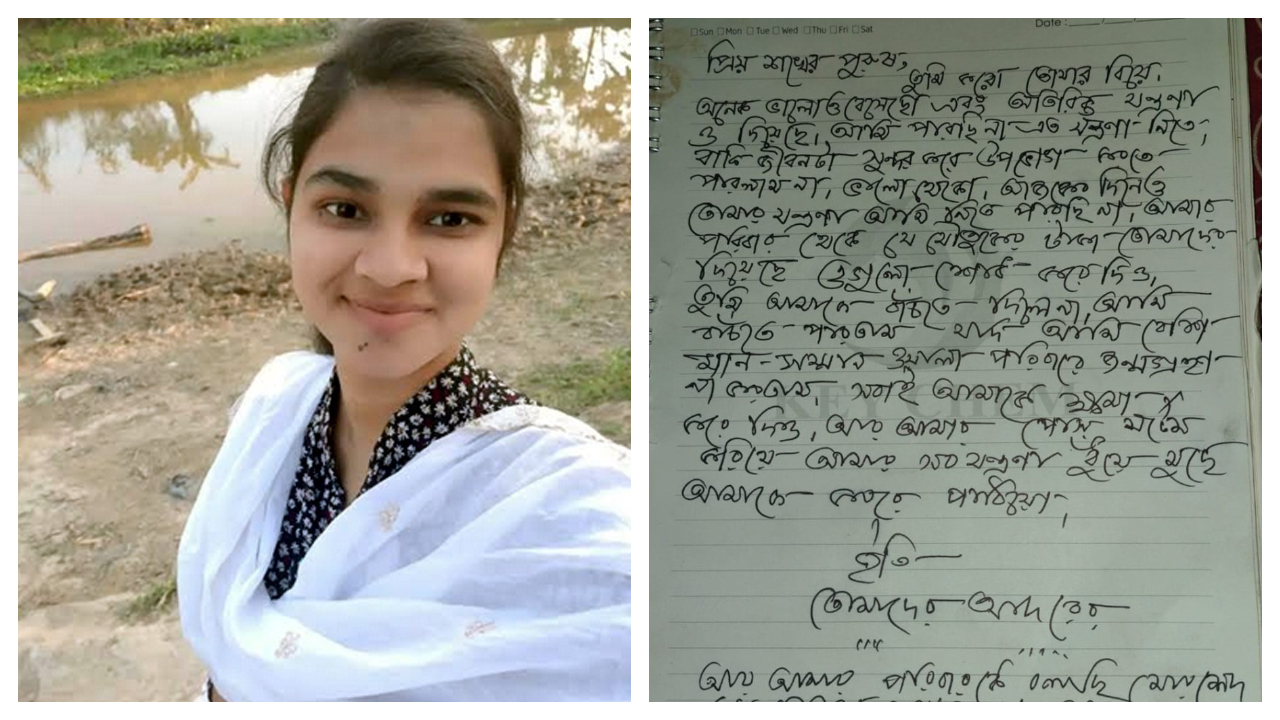 Date : / /
Sun Mon Tue Wed Thu Fri Sat
প্রিয় শখের পুরুষ,
তুমি করো তোমার বিয়ে,
অনেক ভালোও বেসেছো এবং অতিরিক্ত যন্ত্রণা
ও দিয়েছে, আমি পারছি না এত যন্ত্রণা নিতে,
বাকি জীবনটা সুন্দর করে উপভোগ করতে
পারলাম না, ভালো থেকো, আজকের দিনও
তোমার যন্ত্রণা আমি নিতে পারছি না, আমার
পরিবার থেকে যে যৌতুকের টাকা তোমাদের
দিয়েছে ওগুলো শোধ করে দিও,
তুমি আমাকে বাঁচতে দিলে না, আমি
বাঁচতে পারতাম যদি আমি বেশি
মান-সম্মান ওয়ালা পরিবারে জন্মগ্রহণ
করতাম, সবাই আমাকে ক্ষমা
করে দিও, আর আমার পোস্ট মর্টেম
করিয়ে আমার সব যন্ত্রণা ধুঁয়ে মুছে
আমাকে কবরে পাঠাইয়া,
ইতি
তোমাদের আদরের
আর আমার পরিবারকে বলছি